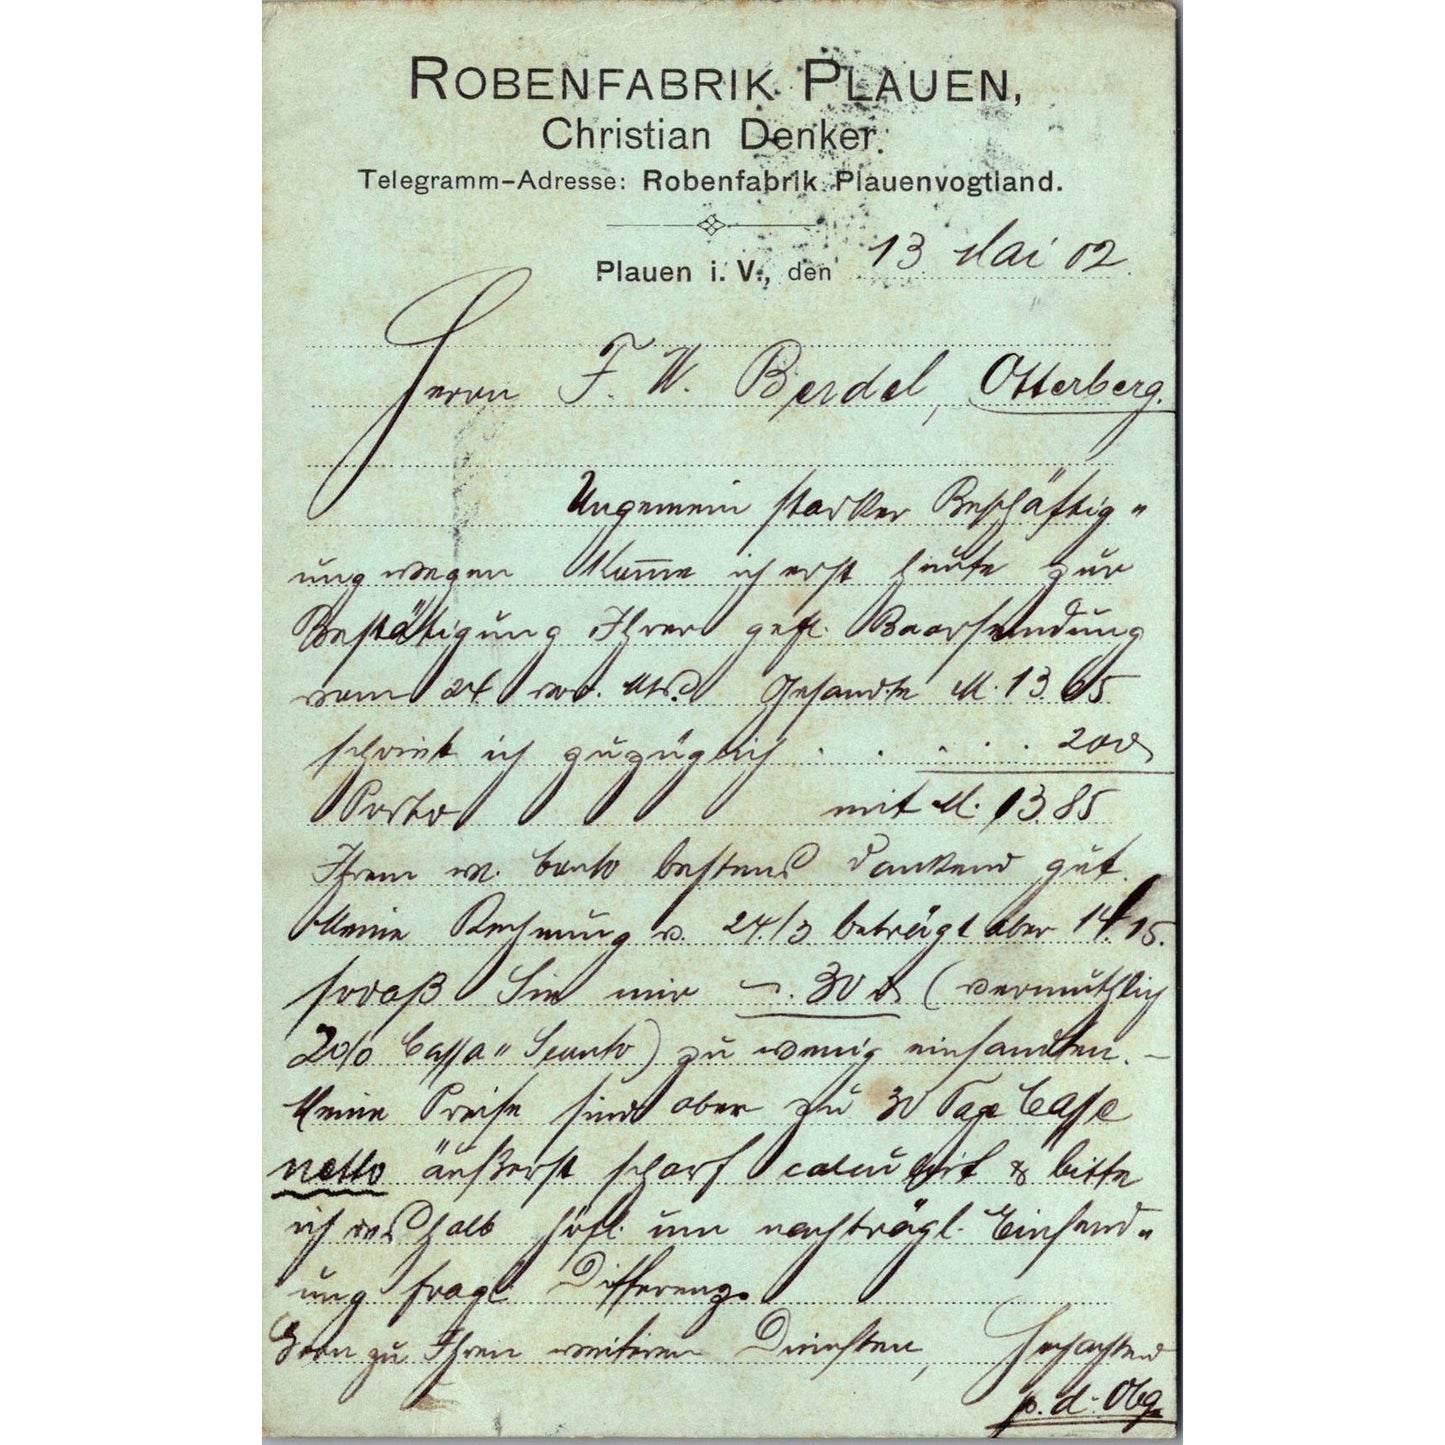 ROBENFABRIK PLAUEN,
Christian Denker.
Telegramm-Adresse: Robenfabrik Plauenvogtland.
Plauen i. V., den 13 Mai 02.
Herrn F. W. Berdel, Otterberg.
Ungemein starker Beschäftig-
ung wegen kom̄e ich erst heute zur
Bestätigung Ihrer gefl. Baarsendung
vom 24. vor. Mts. Gesandte M. 13.65
schrieb ich zuzüglich . . . . . 20
Porto mit M. 13.85
Ihrem w. Conto bestens dankend gut.
Meine Rechnung v. 24./3 beträgt aber 14.15.
sodaß Sie mir –.30 (vermuthlich
2% Cassa-Sconto) zu wenig einsandten. –
Meine Preise sind aber zu 30 Tage Casse
netto äußerst scharf calculirt & bitte
ich deshalb höfl. um nachträgl. Einsend-
ung fragl. Differenz.
Gern zu Ihren weiteren Diensten, Hochachtend
p. d. Obg.